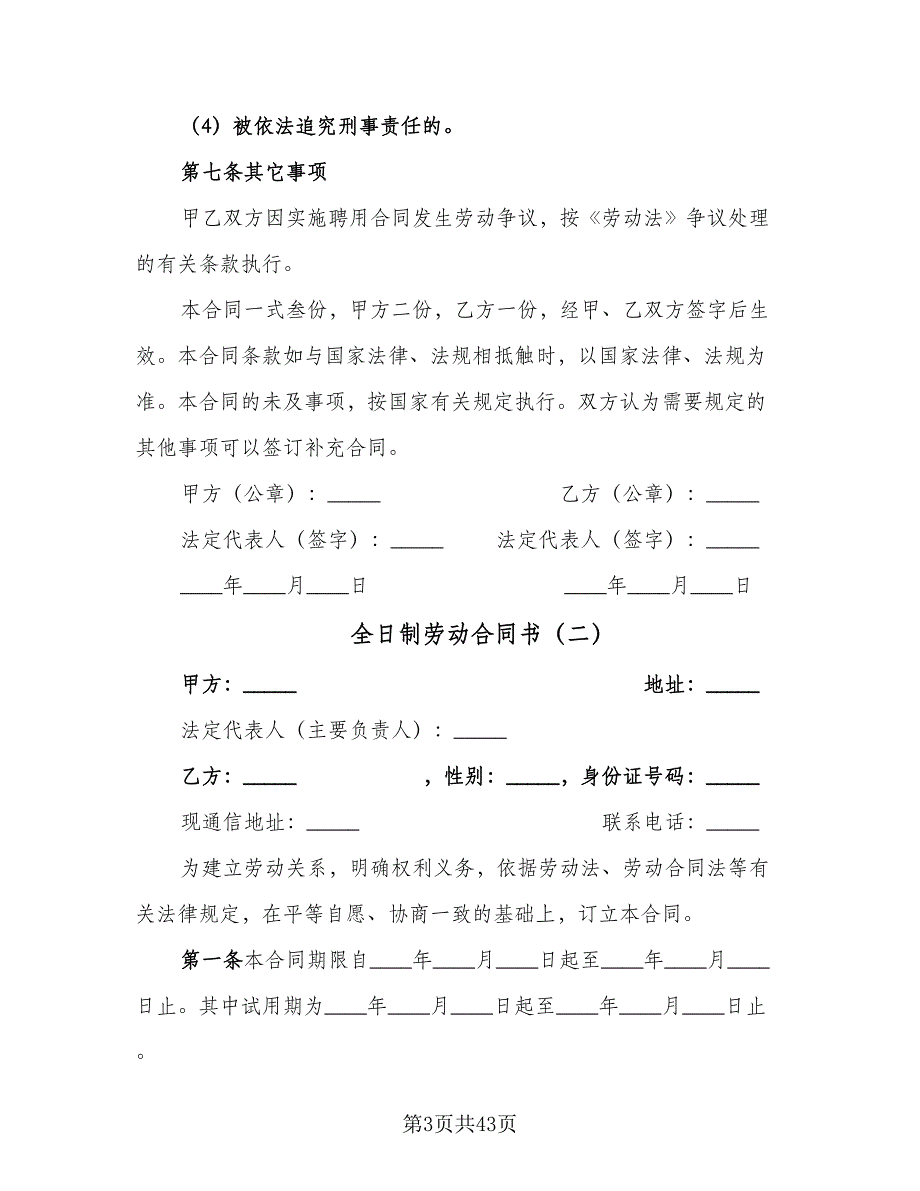 （4）被依法追究刑事责任的。
第七条其它事项
甲乙双方因实施聘用合同发生劳动争议，按《劳动法》争议处理
的有关条款执行。
本合同一式叁份，甲方二份，乙方一份，经甲、乙双方签字后生
效。本合同条款如与国家法律、法规相抵触时，以国家法律、法规为
准。本合同的未及事项，按国家有关规定执行。双方认为需要规定的
其他事项可以签订补充合同。
甲方（公章）：_____ 乙方（公章）：_____
法定代表人（签字）：_____ 法定代表人（签字）：_____
____年____月____日 ____年____月____日
全日制劳动合同书（二）
甲方：_____ 地址：_____
法定代表人（主要负责人）：_____
乙方：_____ ，性别：_____，身份证号码：_____
现通信地址：_____ 联系电话：_____
为建立劳动关系，明确权利义务，依据劳动法、劳动合同法等有
关法律规定，在平等自愿、协商一致的基础上，订立本合同。
第一条本合同期限自____年____月____日起至____年____月____
日止。其中试用期为____年____月____日起至____年____月____日止
。
第3页共43页